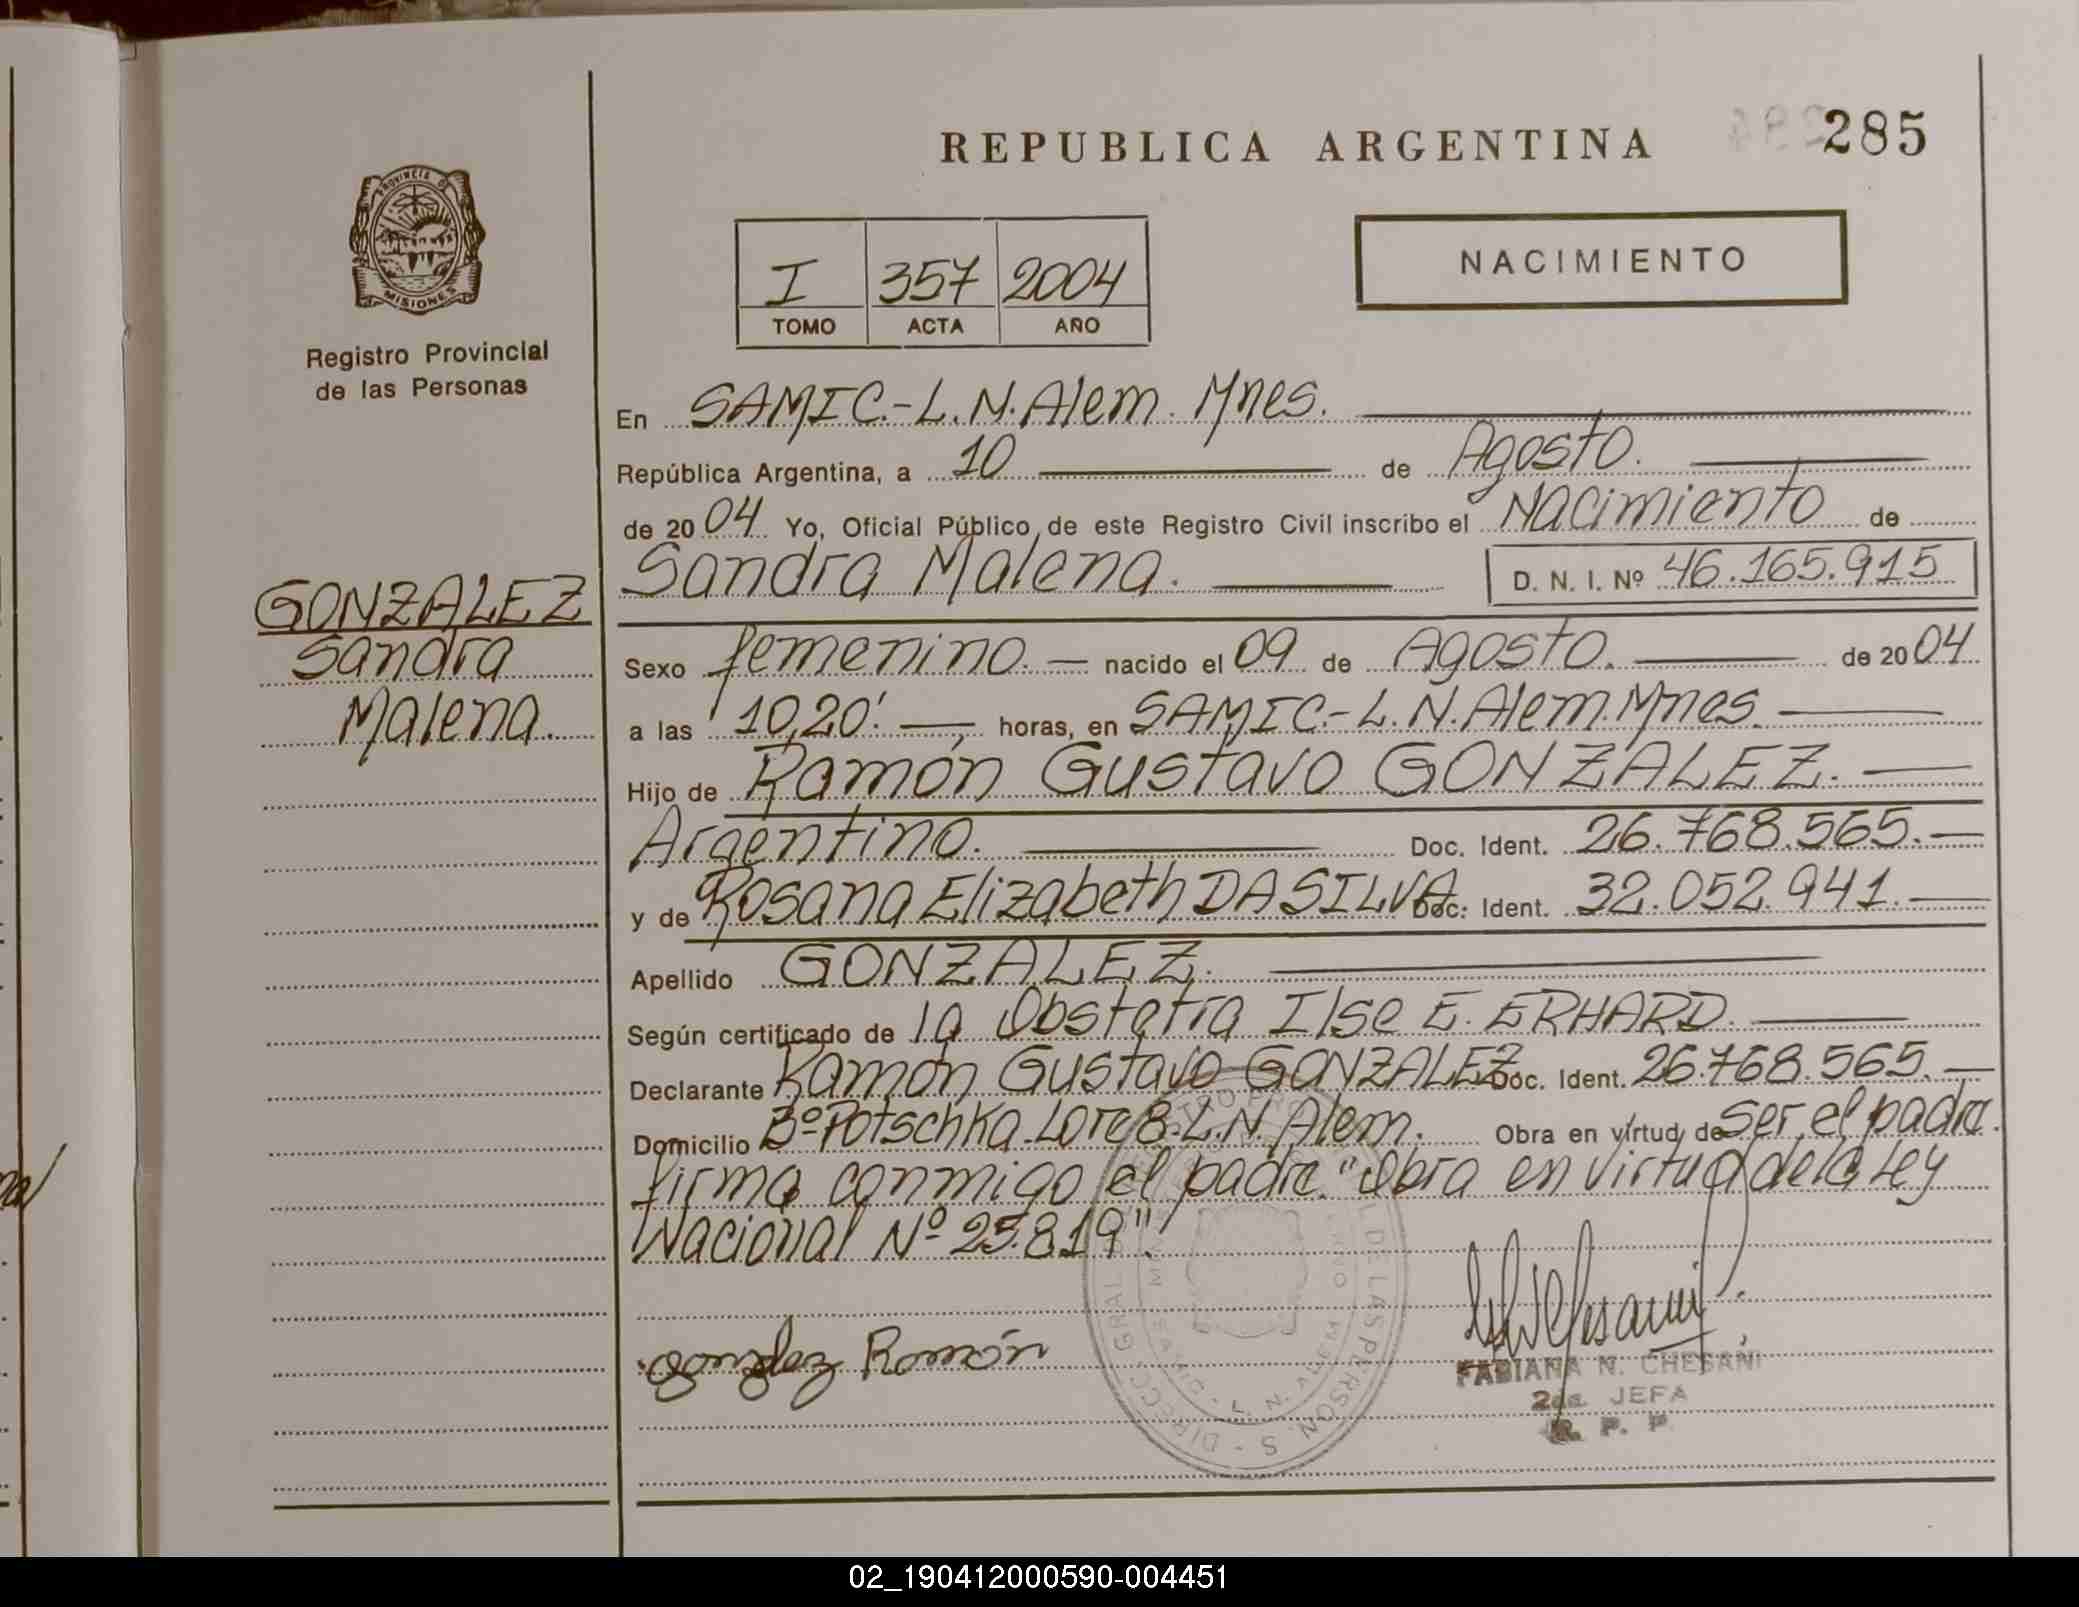 REPUBLICA ARGENTINA
285
PROVINCIA DE
MISIONES
Registro Provincial
de las Personas
I 357 2004
TOMO ACTA AÑO
NACIMIENTO
En SAMIC.-L.N.Alem. Mnes.
República Argentina, a 10 de Agosto.
de 2004 Yo, Oficial Público de este Registro Civil inscribo el Nacimiento de
Sandra Malena. D. N. I. Nº 46.165.915
GONZALEZ
Sandra
Malena.
Sexo femenino. nacido el 09 de Agosto. de 2004
a las 10,20'. horas, en SAMIC.-L.N.Alem.Mnes.
Hijo de Ramón Gustavo GONZALEZ.
Argentino. Doc. Ident. 26.768.565.
y de Rosana Elizabeth DA SILVA Doc. Ident. 32.052.941.
Apellido GONZALEZ.
Según certificado de la Obstetra Ilse E. ERHARD.
Declarante Ramón Gustavo GONZALEZ Doc. Ident. 26.768.565.
Domicilio Bº Potschka. Lote 8. L.N. Alem. Obra en virtud de ser el padre.
firma conmigo el padre. "Obra en virtud de la Ley
Nacional Nº 25.819".
Gonzalez Ramón
FABIANA N. CHESANI
2da. JEFA
R. P. P.
02_190412000590-004451